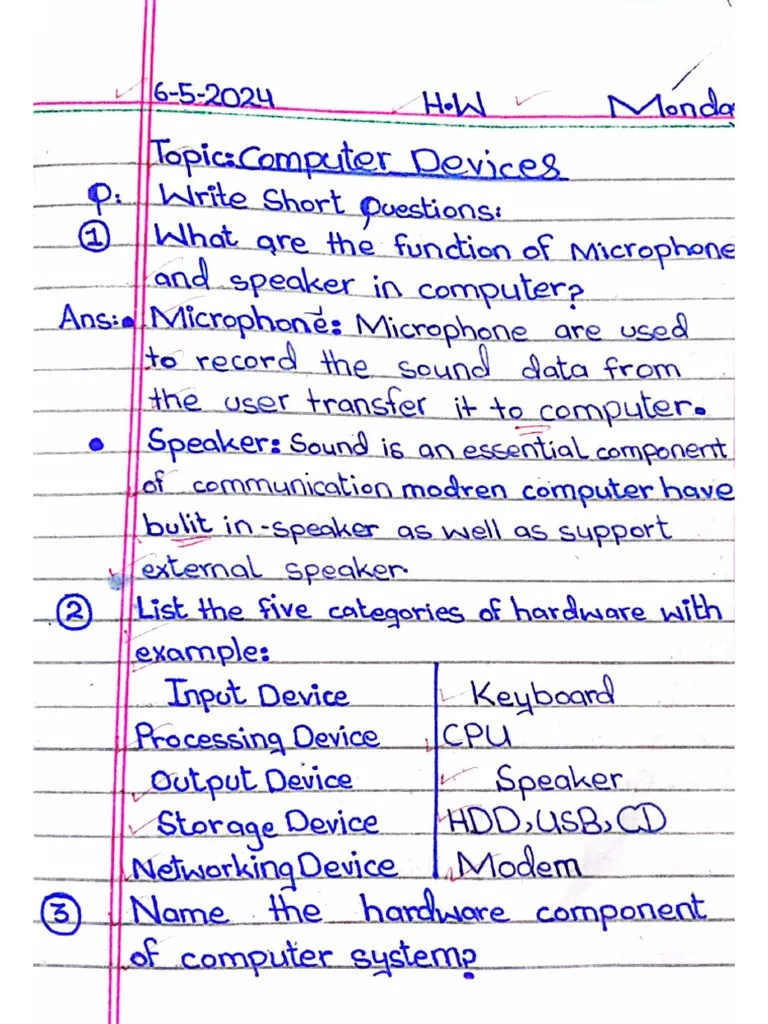 6-5-2024 H.W Monda
Topic: Computer Devices
Q: Write Short Questions:
① What are the function of Microphone
and speaker in computer?
Ans: • Microphone: Microphone are used
to record the sound data from
the user transfer it to computer.
• Speaker: Sound is an essential component
of communication modren computer have
bulit in-speaker as well as support
external speaker.
② List the five categories of hardware with
example:
Input Device Keyboard
Processing Device CPU
Output Device Speaker
Storage Device HDD, USB, CD
Networking Device Modem
③ Name the hardware component
of computer system?